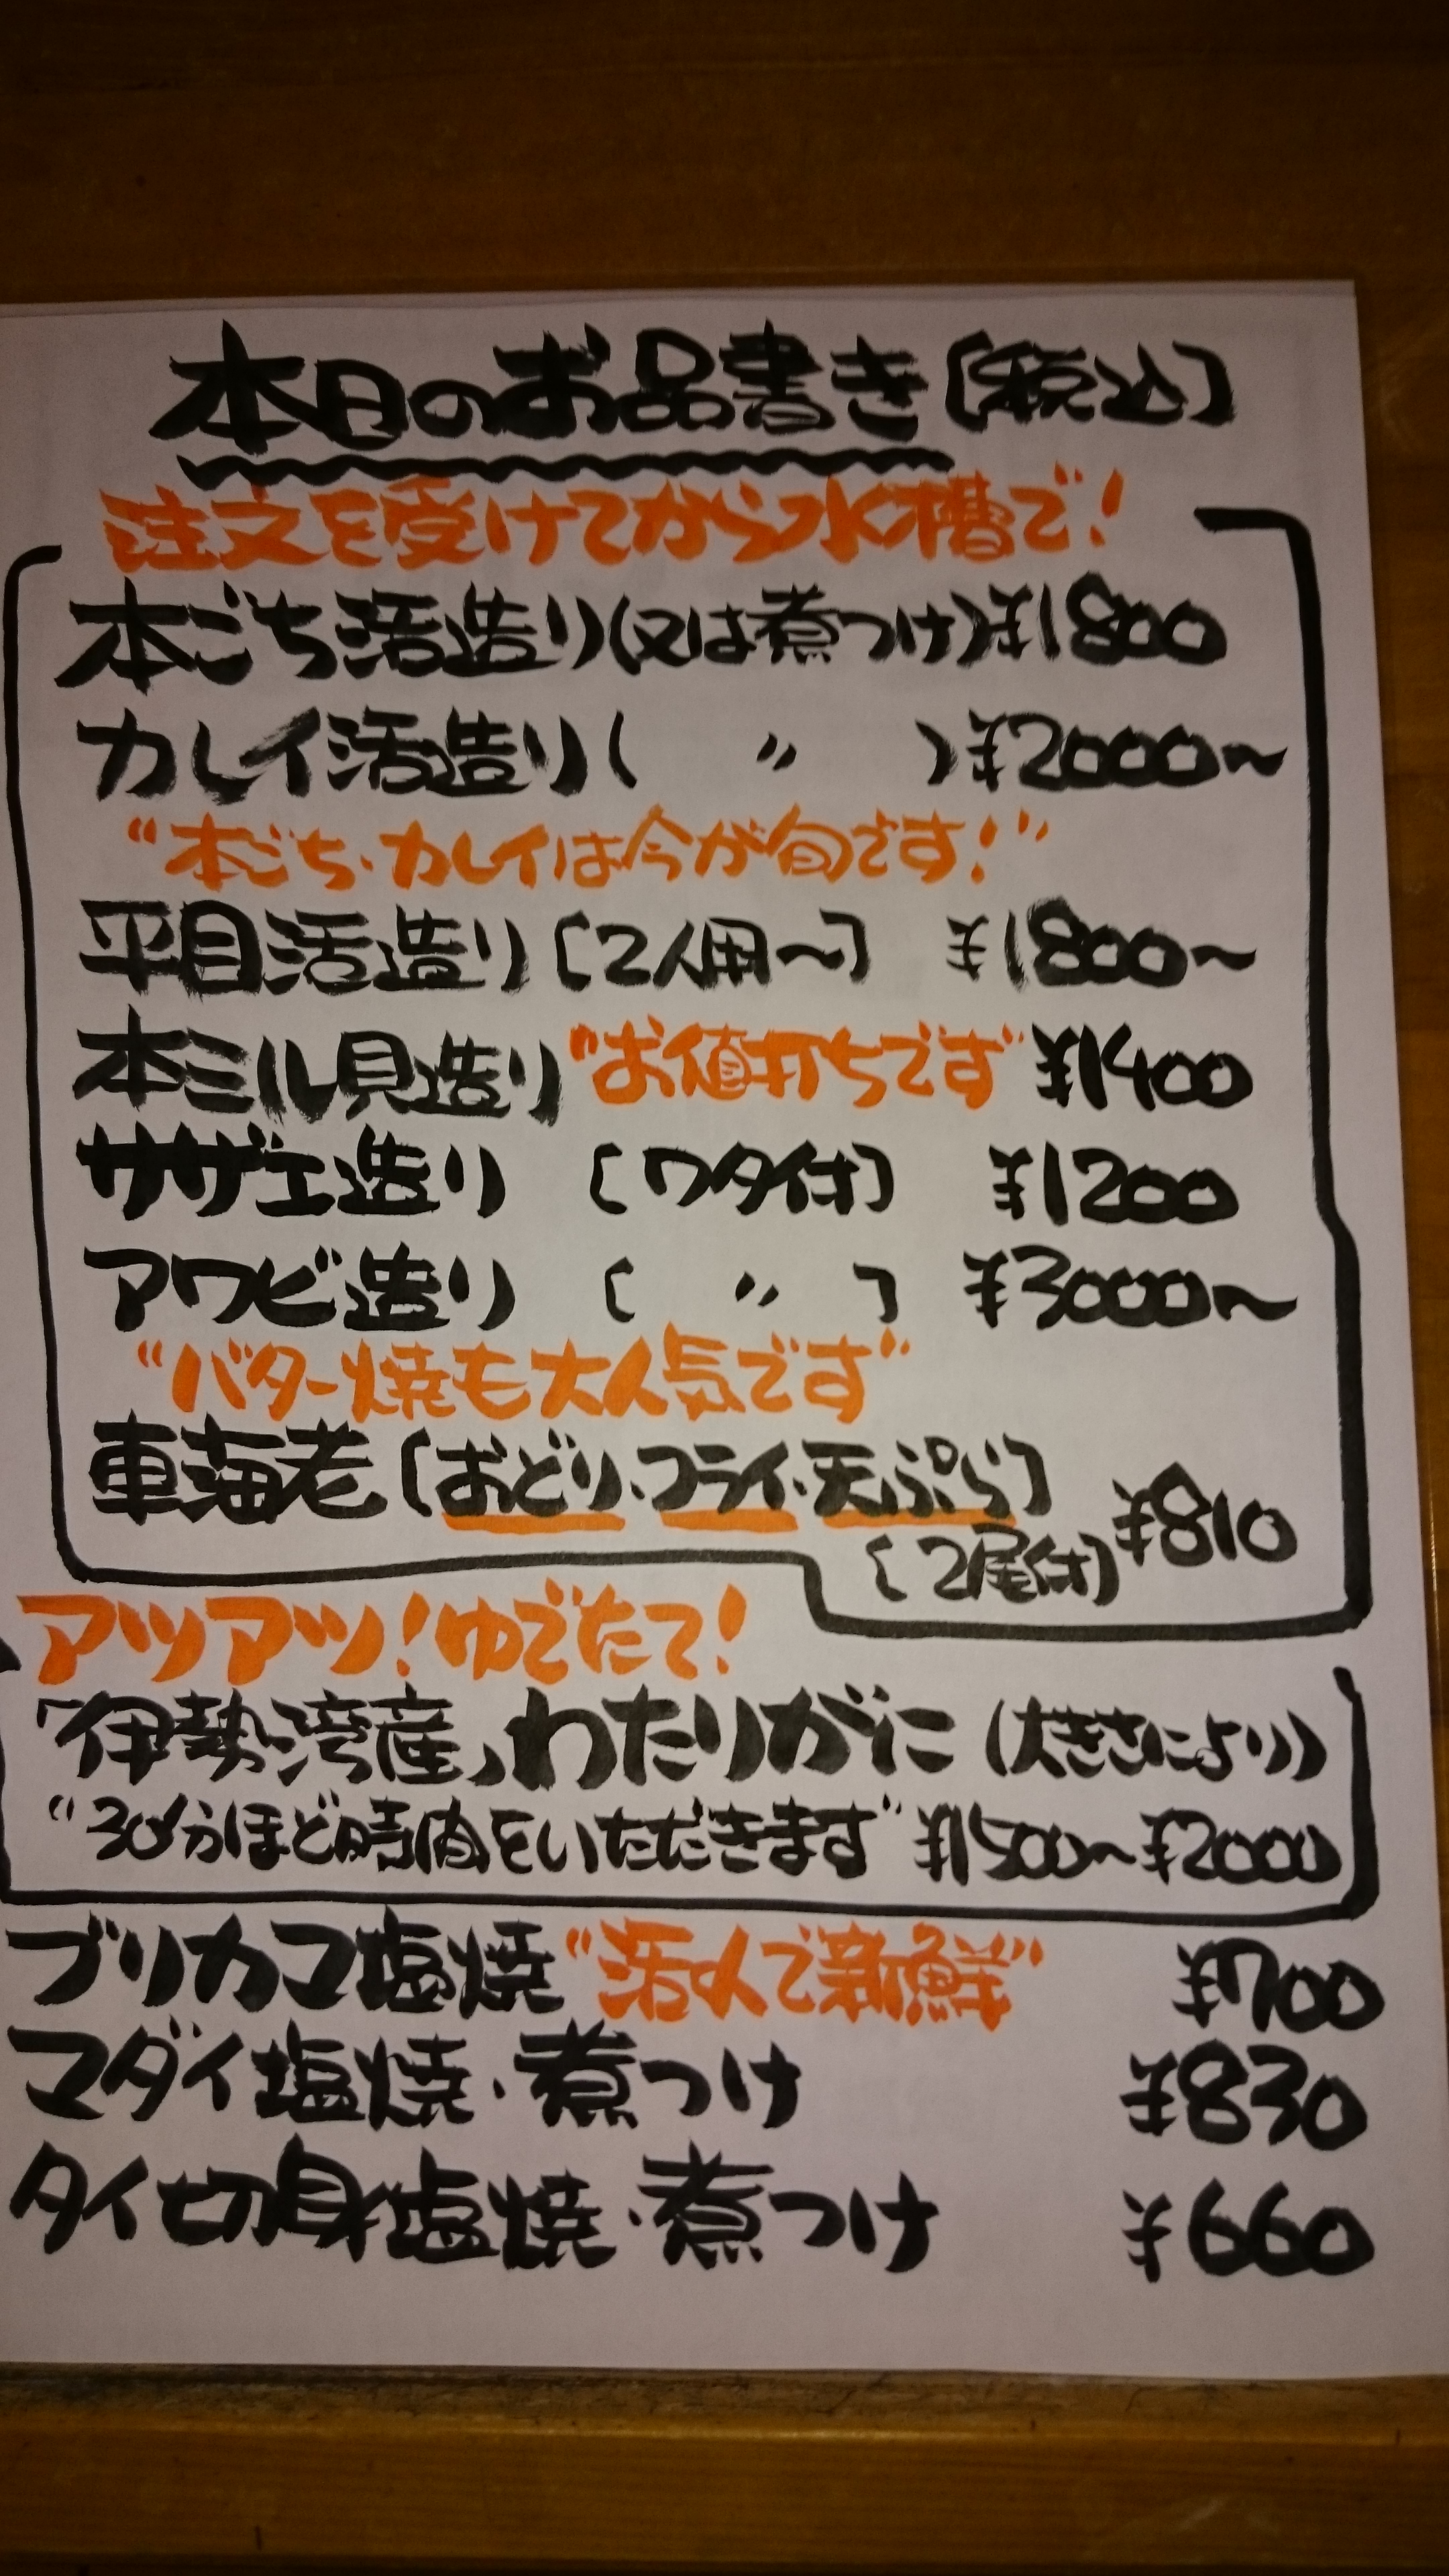 本日のお品書き[税込]
注文を受けてから水槽で!
本ごち活造り(又は煮つけ)¥1800
カレイ活造り(〃)¥2000~
"本ごち・カレイは今が旬です!"
平目活造り[2人用~] ¥1800~
本ミル貝造り"お値打ちです" ¥1400
サザエ造り [ワタ付] ¥1200
アワビ造り [〃] ¥3000~
"バター焼も大人気です"
車海老[おどり・フライ・天ぷら]
[2尾付] ¥810
アツアツ!ゆでたて!
「伊勢湾産」わたりがに(大きさにより)
"30分ほど時間をいただきます" ¥1500~¥2000
ブリカマ塩焼"活〆で新鮮" ¥700
マダイ塩焼・煮つけ ¥830
タイ切身塩焼・煮つけ ¥660